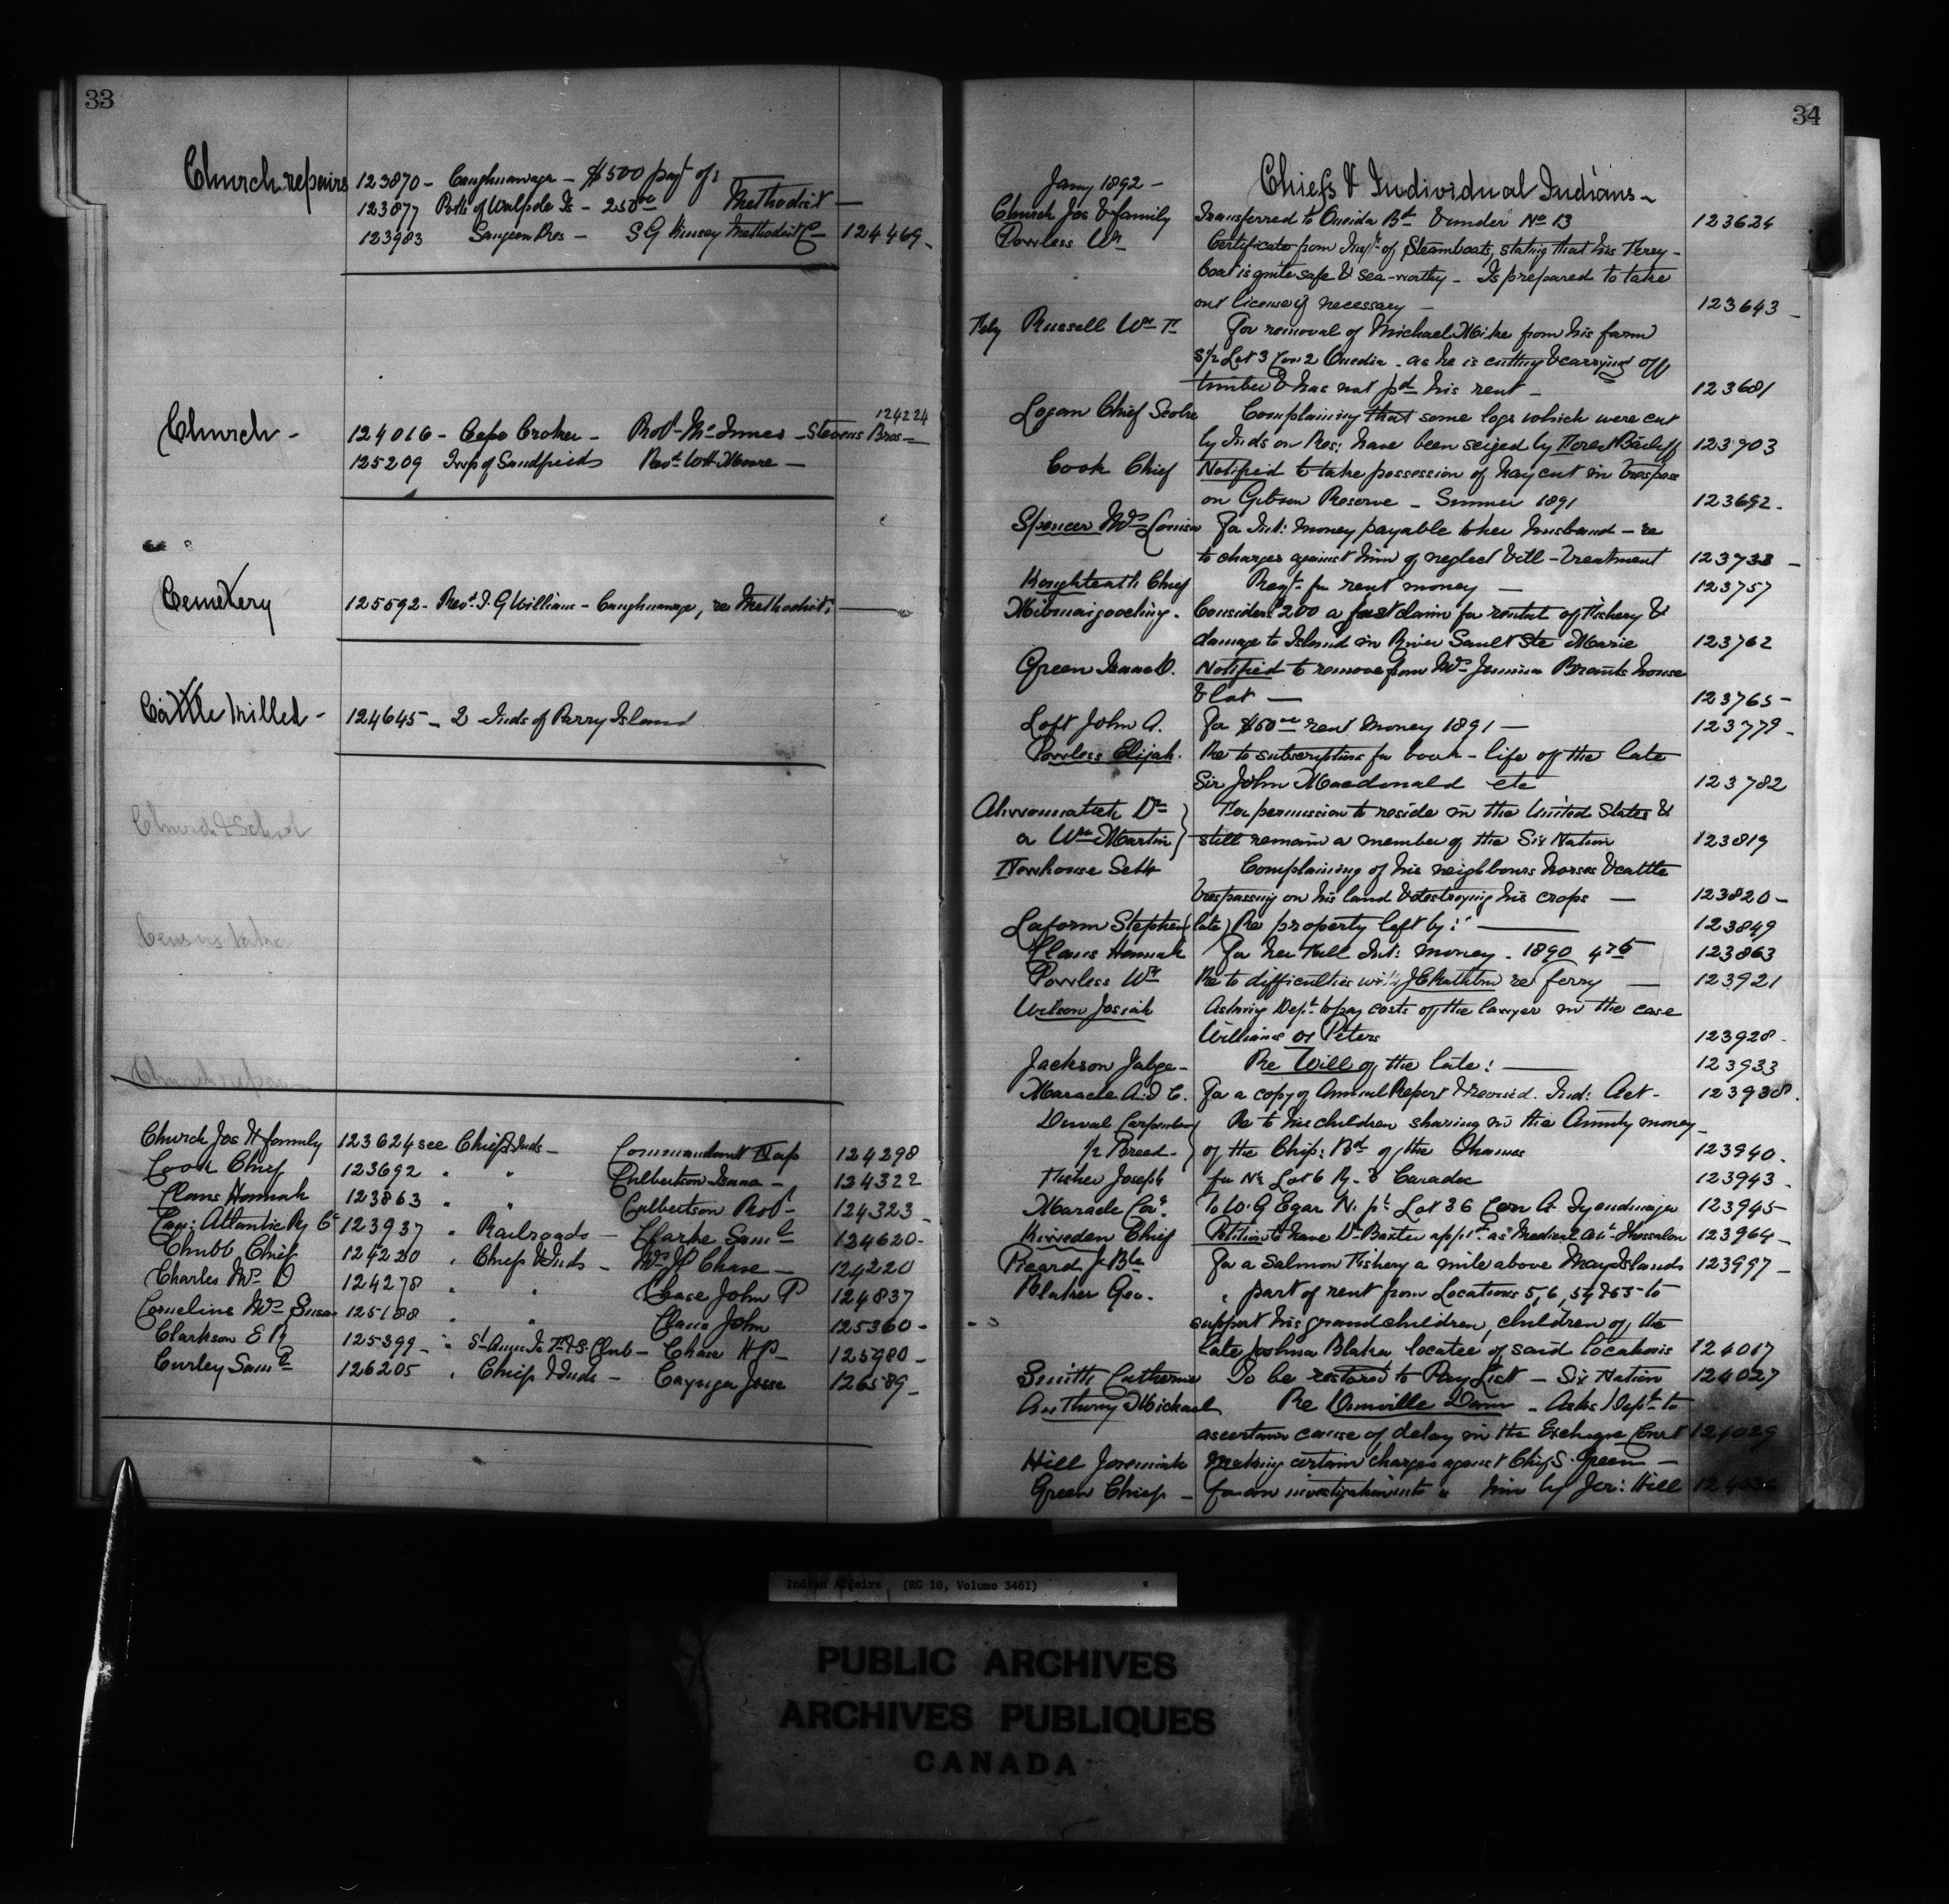 33
Church repairs 123870 - Caughnawaga - $500 payt of:
123877 Potts of Walpole Is - 250.00 Methodist -
123983 Saugeen Res - S G Kinsey Methodist C - 124469 -
124224
Church - 124016 - Cape Croker - Robt McInnes - Stevens Bros -
125209 Twp of Sandfield Revd W H Moore -
Cemetery 125592 - Revd T. G Williams - Caughnawaga, re Methodist:
Cattle killed - 124645 - 2 Inds of Parry Island
Church & School
Census taker
Church repairs
Church Jos & family 123624 see Chiefs & Inds - Commandant Nap 124298
Cook Chief 123692 " " Culbertson Isaac - 124322
Claus Hannah 123863 " " Culbertson Robt 124323 -
Can: Atlantic Ry Co 123937 " Railroads - Clarke Saml 124620 -
Chubb Chief 124220 " Chiefs & Inds - Mrs P Chase - 124220
Charles Mrs D 124278 " " Chase John P 124837
Cornelius Mrs Susan 125188 " " Claus John 125360 -
Clarkson E R 125399 - " St Anns Is F & S. Club - Chase H P - 125980 -
Curley Saml 126205 " Chiefs & Inds - Cayuga Jesse 126589 -
34
Jany 1892 - Chiefs & Individual Indians -
Church Jos & family Transferred to Oneida Bd & under No 13 123624
Powless Wm Certificate from Inspr of Steamboats, stating that his Ferry -
boat is quite safe & sea-worthy - Is prepared to take
out license if necessary - 123643 -
Russell Wm For removal of Michael Mike from his farm
S½ Lot 3 Con 2 Oneida - as he is cutting & carrying off
timber & has not pd his rent - 123681
Logan Chief Complaining that some logs which were cut
by Inds on Res: have been seized by Bailiff 123703
Cook Chief Notified to take possession of hay cut in trespass
on Gibson Reserve - Summer 1891 123692 -
Spencer Mrs Louisa For Int: money payable to her husband - re
to charges against him of neglect & ill-treatment 123738 -
Chief Reqt for rent money - 123757
Considers 200 a just claim for rental of Fishery &
damage to Island in River Sault Ste Marie 123762
Green Isaac D. Notified to remove from Mrs Jemima Brants house
& lot - 123765 -
Loft John A. For $50.00 rent money 1891 - 123779 -
Powless Elijah. Re to subscriptions for book - life of the late
Sir John Macdonald etc 123782
Dr For permission to reside in the United States &
a Wm Martin still remain a member of the Six Nation 123819
Newhouse Seth Complaining of his neighbours horses & cattle
trespassing on his land & destroying his crops - 123820 -
Laform Stephen (late) Re property left by: 123849
Claus Hannah For her full Int: money - 1890 4.75 123863
Powless Wm Re to difficulties with J C Rathbun re ferry - 123921
Wilson Josiah Asking Dept to pay costs of the lawyer in the case
Williams vs Peters 123928 -
Jackson Jabez - Re Will of the late: 123933
Maracle A. D C. For a copy of Annual Report & revised Ind: Act - 123938.
Duval Carpenter Re to his children sharing in the Annuity money -
½ Breed - of the Chip: Bd of the Thames 123940 -
Fisher Joseph for N½ Lot 6 R. Caradoc 123943
Maracle Cor. To W. G Egar N. pt Lot 36 Con A Tyendinaga 123945 -
Chief Petition to have Dr Baxter apptd as Medical att. 123964 -
Picard J. Bte For a Salmon Fishery a mile above May Islands 123997 -
Blaker Geo. " part of rent from Locations 5, 6, 54 & 55 to
support his grandchildren, children of the
late Joshua Blaker locatee of said locations 124017
Smith Catherine To be restored to Pay List - Six Nation 124027
Anthony Michael Re Dunnville Dam - Asks Dept to
ascertain cause of delay in the Exchequer Court 124029
Hill Jeremiah Making certain charges against Chief S. Green -
Green Chief - for an investigation into " him by Jer: Hill
Indian Affairs (RG 10, Volume 3461)
PUBLIC ARCHIVES
ARCHIVES PUBLIQUES
CANADA